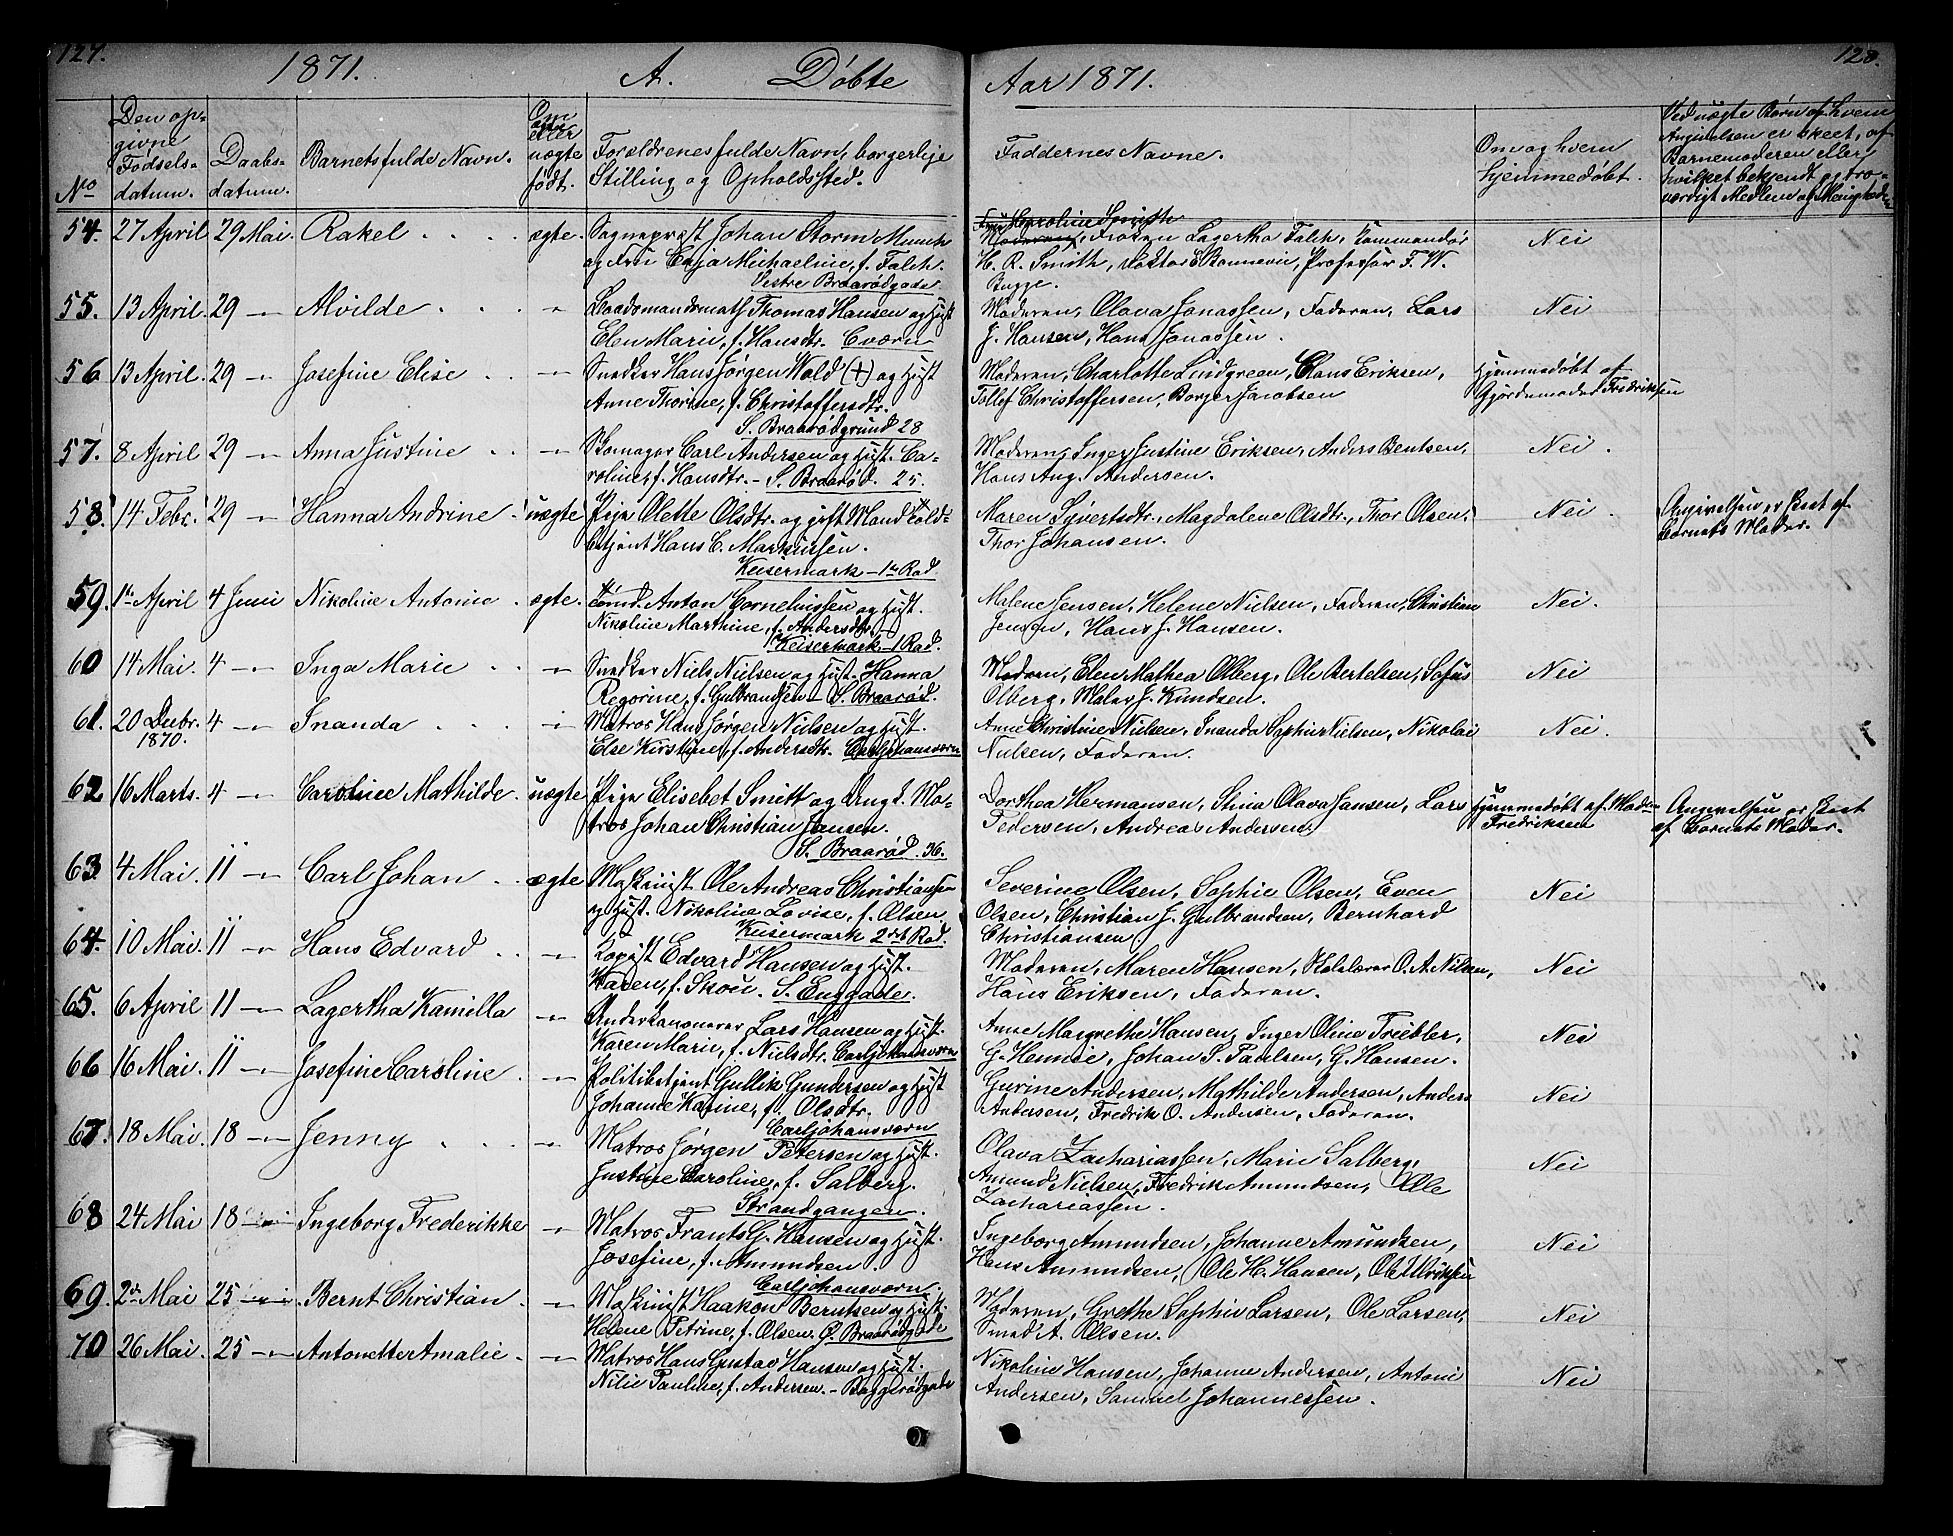 127. 1871. A. Døbte
Aar 1871. 128.
No
Den opgivne Fødselsdatum.
Daabsdatum.
Barnets fulde Navn.
Om ægte eller uægte født.
Forældrenes fulde Navn, borgerlige
Stilling og Opholdssted.
Faddernes Navne.
Om og hvem
hjemmedøbt.
Ved uægte Børn af hvem
Angivelsen er skeet, af
Barnemoderen eller
hvilket bekjendt og tro-
værdigt Medlem af Menighede-
54. 27 April 29 Mai. Rakel ægte. Sognepræst Johan Storm Munch
og Fru Enja Michaeline, f. Falch.
Vestre Braarødgade
Fru Caroline Smith
Moderen, Frøken Lagertha Falch, Kommandør
H. R. Smith, Doktor Bonnevie, Professor F. W.
Bugge.
Nei
55. 13 April. 29 — Alvilde — Baadsmandsmath Thomas Hansen og Hust
Elen Marie, f. Hansdtr. Cværn
Moderen, Olava Jonassen, Faderen, Lars
J. Hansen, Hans Jonassen.
Nei
56 13 April. 29 — Josefine Elise — Snedker Hans Jørgen Wold (+) og Hust
Anne Thorine, f. Christoffersdtr.
S. Braarødgrund 28
Moderen, Charlotte Lindgreen, Hans Eriksen,
Tollef Christoffersen, Borger Jacobsen
Hjemmedøbt af
Gjordemoder Fredriksen
57. 8 April 29 — Anna Justine — Skomager Carl Andersen og Hust. Ca-
roline, f. Hansdtr. - S. Braarød. 25.
Moderen, Inger Justine Eriksen, Anders Bentsen,
Hans Aug. Andersen.
Nei.
58. 14 Febr. 29 — Hanna Andrine uægte Pige Olette Olsdtr. og gift Mand Told-
betjent Hans C. Markussen.
Keisermark - 1te Rad.
Maren Syvertsdtr., Magdalene Olsdtr., Thor Olsen,
Thor Johansen.
Nei.
Angivelsen er skeet af
Barnets Moder.
59. 1te April 4 Juni Nikoline Antonie ægte. Tømd. Anton Cornelinssen og Hust.
Nikoline Marthine, f. Andersdtr.
Keisermark - 1 Rad.
Malene Jensen, Helene Nielsen, Faderen, Christian
Jensen, Hans J. Hansen.
Nei.
60 14 Mai. 4 — Inga Marie — Snedker Niels Nielsen og Hust. Hanna
Regorine, f. Gulbrandsen - S. Braarød.
Moderen, Elen Mathea Olberg, Ole Bertelsen, Sofus
Olberg, Maler J. Knudsen.
Nei
61. 20 Decbr. 1870. 4 — Inanda — Matros Hans Jørgen Nielsen og Hust.
Else Kirstine, f. Andersdtr. Carljohansværn
Anne Christine Nielsen, Inanda Sophie Nielsen, Nikolai
Nielsen, Faderen.
Nei.
62 16 Marts. 4 — Caroline Mathilde. uægte Pige Elisebet Smitt og Ungk. Ma-
tros Johan Christian Jansen.
S. Braarød. 36.
Dorthea Hermansen, Stina Olava Jansen, Lars
Pedersen, Andreas Andersen.
Hjemmedøbt af
Fredriksen
Angivelsen er skeet
af Barnets Moder.
63. 4 Mai. 11 — Carl Johan ægte Maskinist Ole Andreas Christiansen
og Hust. Nikoline Lovise, f. Olsen.
Keisermark 2det Rad.
Severine Olsen, Sophie Olsen, Even
Olsen, Christian J. Gulbrandsen, Bernhard
Christiansen
Nei
64. 10 Mai. 11 — Hans Edvard — Kopist Edvard Hansen og Hust.
Karen, f. Skou. S. Enggade.
Moderen, Maren Hansen, Skolelærer O. A. Nilsen,
Hans Eriksen, Faderen.
Nei
65. 6 April 11 — Lagertha Kamilla — Underkanonerer Lars Hansen og Hust.
Karen Marie, f. Nielsdtr. Carljohansværn
Anne Margrethe Hansen, Inger Oline Triebler,
G. Hennie, Johan S. Paulsen, G. Hansen.
Nei
66 16 Mai. 11 — Josefine Caroline — Politibetjent Gullik Gundersen og Hust
Johanne Karine, f. Olsdtr.
Carljohansværn
Gurine Andersen, Mathilde Andersen, Anders
Andersen, Fredrik O. Andersen, Faderen.
Nei
67. 18 Mai. 18 — Jenny — Matros Jørgen Petersen og Hust.
Justine Caroline, f. Salberg.
Strandgangen.
Olava Zachariassen, Marie Salberg,
Amund Nielsen, Fredrik Amundsen, Ole
Zachariassen.
Nei
68 24 Mai 18 — Ingeborg Frederikke — Matros Frants G. Hansen og Hust.
Josefine, f. Amundsen.
Carljohansværn
Ingeborg Amundsen, Johanne Amundsen,
Hans Amundsen, Ole H. Hansen, Ole Ulriksen
Nei
69. 2de Mai 25 — Bernt Christian — Maskinist Haakon Berntsen og Hust.
Helene Petrine, f. Olsen. Ø. Braarødgade
Moderen, Grethe Sophie Larsen, Ole Larsen,
Smed A. Olsen.
Nei
70 26 Mai. 25 — Antonette Amalie — Matros Hans Gustav Hansen og Hust.
Nilie Pauline, f. Andersen. - Baggerødgade
Nikoline Hansen, Johanne Andersen, Antoni
Andersen, Samuel Johannessen.
Nei